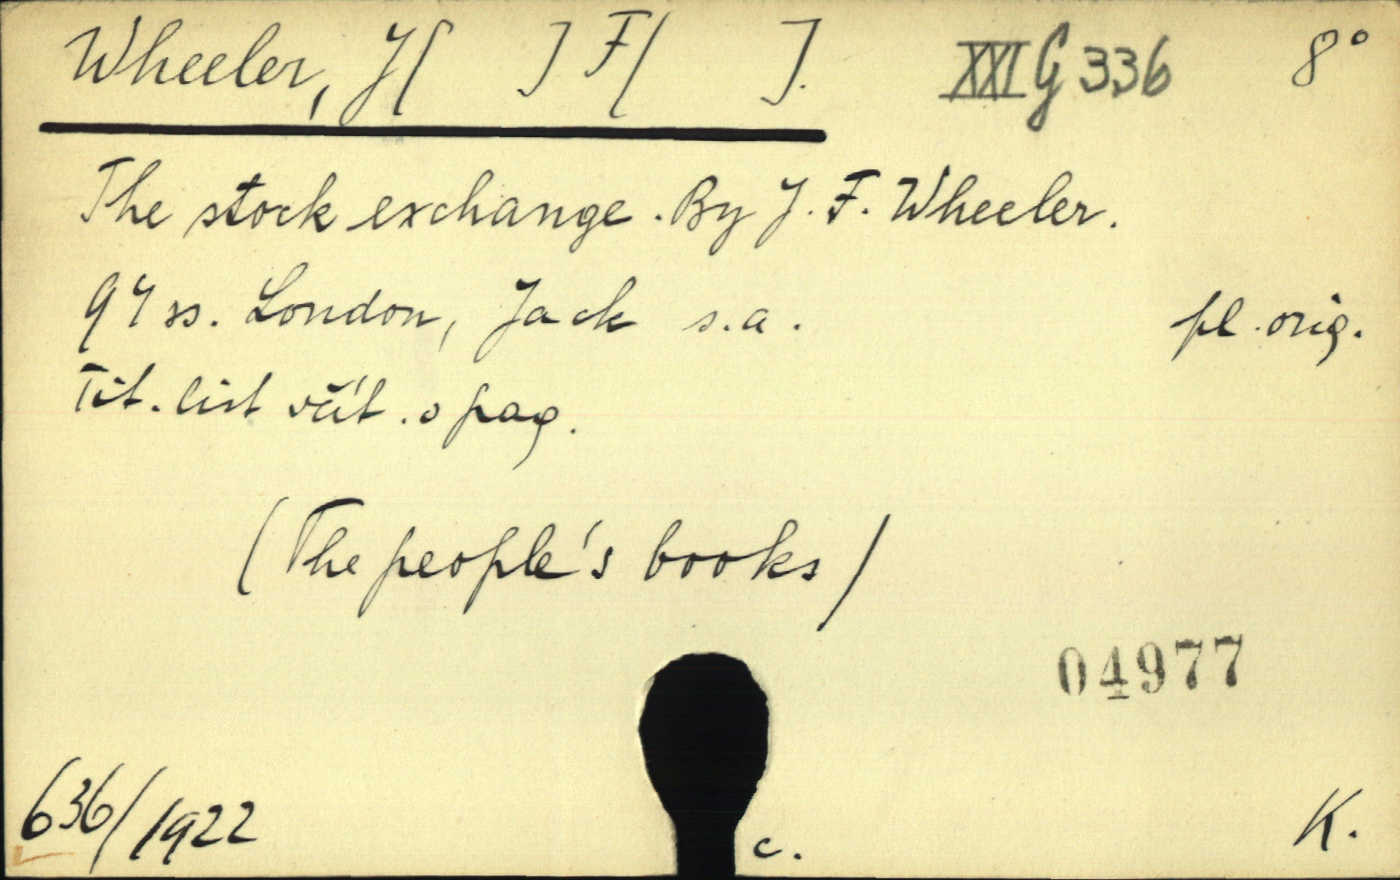 Wheeler, J[ ] F[ ]. XXI G 336 8°
The stock exchange. By J. F. Wheeler.
94 ss. London, Jack s.a. pl. orig.
Tit. list včít. o pag.
(The people's books)
04977
636/1922 c. K.